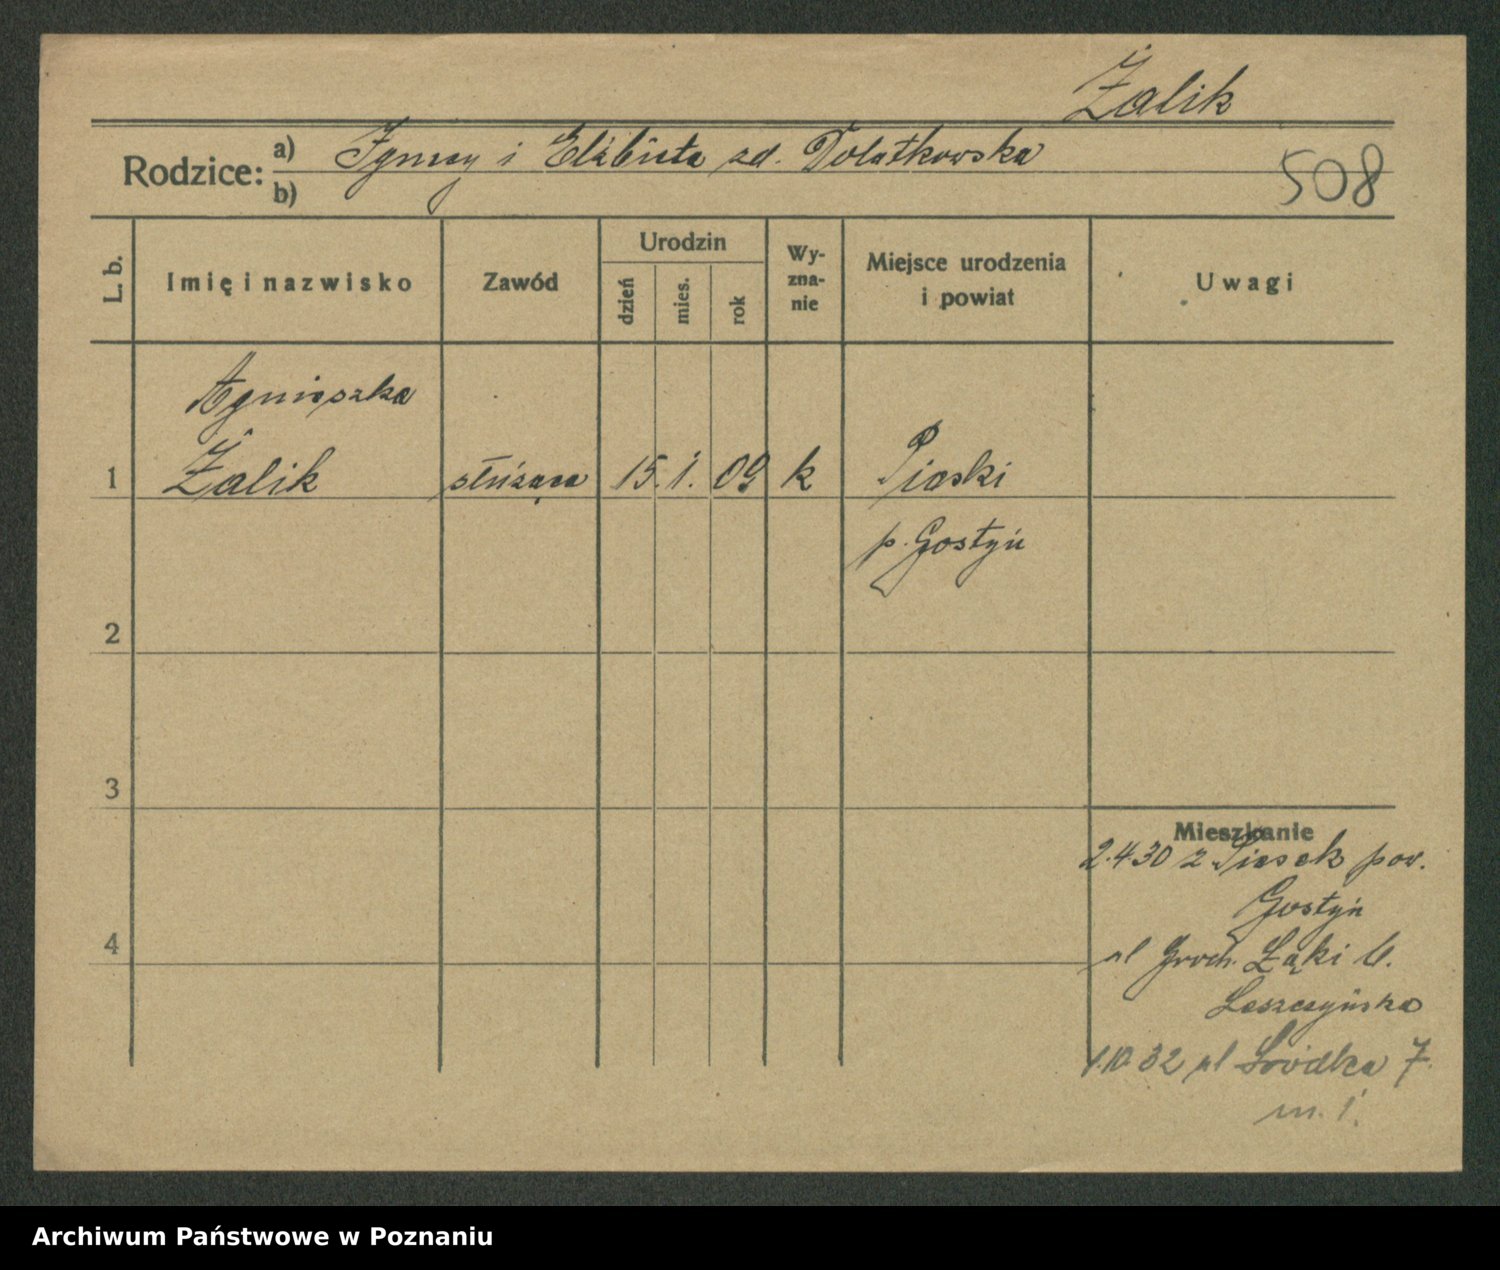 Żalik
Rodzice: a) Ignacy i Elżbieta zd. Dolatkowska
b)
508
L. b.
Imię i nazwisko
Zawód
Urodzin
dzień
mies.
rok
Wy-
zna-
nie
Miejsce urodzenia
i powiat
Uwagi
Agnieszka
1 Żalik służąca 15. 1. 09 k Piaski
p. Gostyń
2
3
Mieszkanie
2.4.30 z Piasek pow.
Gostyń
4
ul Groch. Łąki 6.
Leszczyńska
1.10.32 ul Śródka 7.
m. 1.
Archiwum Państwowe w Poznaniu